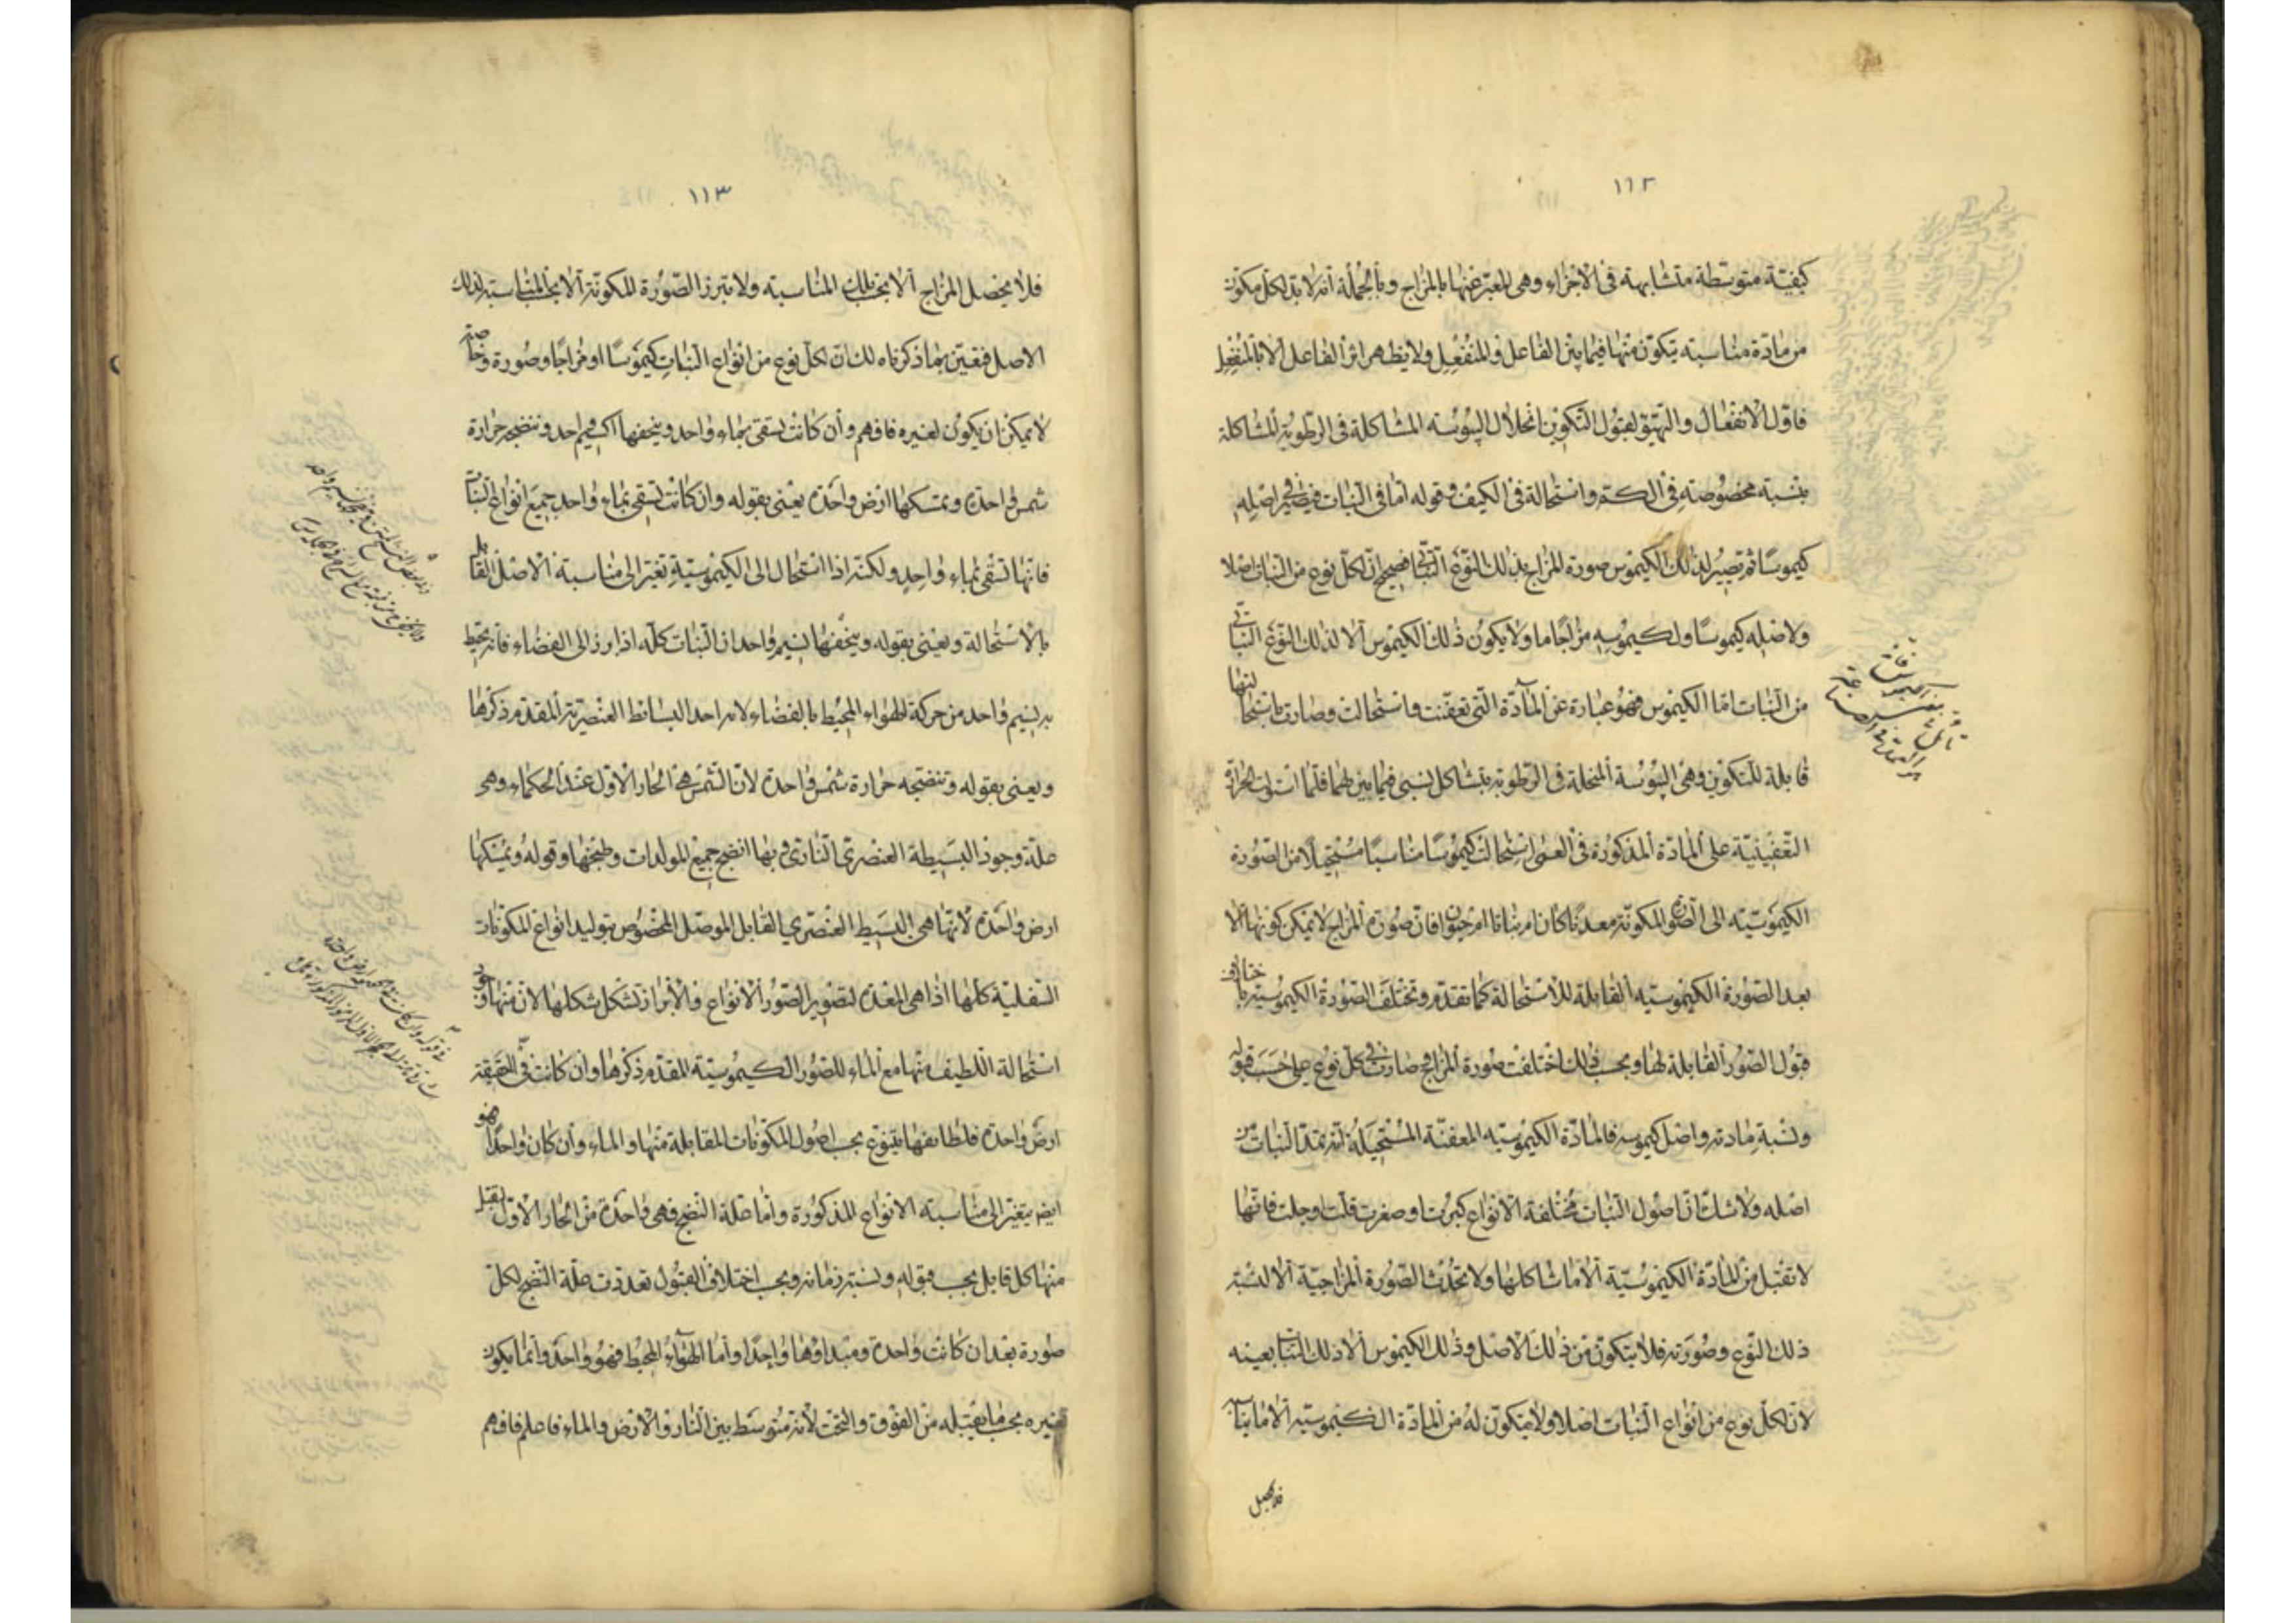 ١١٢
كيفيّة متوسّطة متشابهة فى الاجزاء وهى المعبّر عنها بالمزاج وبالجملة انه لا بدّ لكل مكوّن
من مادّة مناسبة يتكوّن منها فيما بين الفاعل والمنفعل ولا يظهر اثر الفاعل الا بالمنفعل
فاوّل الانفعال والتهيّؤ لقبول التكوين انحلال اليبوسة المشاكلة فى الرطوبة المشاكلة
بنسبة مخصوصة فى الكم واستحالة فى الكيف وقوله امّا فى النبات فيصير فى اصله
كيموسًا ثم تصير لذلك الكيموس صورة المزاج بذلك النوع النباتى فصحيح انّ لكلّ نوع من النبات اصلا
ولاصله كيموسًا ولكيموسه مزاجًا ما ولا يكون ذلك الكيموس الا لذلك النوع النباتى
من النبات امّا الكيموس فهو عبارة عن المادّة التى تعفّنت واستحالت وصارت باستحالتها
قابلة للتكوين وهى اليبوسة المنحلة فى الرطوبة بتشاكل نسبى فيما بينهما فلمّا استولت الحرارة
التعفينيّة على المادّة المذكورة فى استحالت كيموسًا مناسبًا مستحيلًا من الصّورة
الكيموسيّة الى الصّور المكوّنة معدنًا كان ام نباتا ام حيوانا فانّ صورة المزاج لا يمكن كونها الّا
بعد الصّورة الكيموسيّة القابلة للاستحالة كما تقدّم وتختلف الصّورة الكيموسيّة باختلاف
قبول الصّور القابلة لها وبحسب ذلك اختلفت صورة المزاج وصارت فى كلّ نوع على حسب قبوله
ونسبة مادته واصل كيموسه فالمادّة الكيموسيّة المعفنة المستحيلة انّه تمدّ النبات من
اصله ولا شك انّ اصول النبات مختلفة الانواع كبرت او صغرت قلّت او جلت فانّها
لا تقبل من المادّة الكيموسيّة الّا ما شاكلها ولا تحدث الصّورة المزاجيّة الا لنسبة
ذلك النوع وصورته فلا يتكوّن من ذلك الاصل وذلك الكيموس الا ذلك النبات بعينه
لانّ لكلّ نوع من انواع النبات اصلا ولا يتكوّن له من المادّة الكيموسيّة الّا ما يناسبه
فلا يحصل
١١٣
فلا يحصل المزاج الا بحسب تلك المناسبة ولا تبرز الصّورة المكونة الا بحسب المناسبة لذلك
الاصل فتعيّن بما ذكرناه لك انّ لكلّ نوع من انواع النبات كيموسًا ومزاجًا وصورة وخاصّة
لا يمكن ان يكون لغيره فافهم وأن كانت تسقى بماء واحد ويحفها نسيم واحد وتنضجه حرارة
شمس واحدة وتمسكها ارض واحدة يعنى بقوله وان كانت تسقى بماء واحد جميع انواع النبات
فانّها تسقى بماء واحد ولكنّه اذا استحال الى الكيموسيّة تغيّر الى مناسبة الاصل القابل
بالاستحالة ويعنى بقوله ويحفّها نسيم واحد ان النبات كلّه اذا برز الى الفضاء فانه يحيط
به نسيم واحد من حركة الهواء المحيط بالفضاء لانه احد البسائط العنصرية المقدّم ذكرها
ويعنى بقوله وتنضجه حرارة شمس واحدة لانّ الشمس هى الحار الاوّل عند الحكماء وهى
علة وجود البسيطة العنصرى النارى وبها انضج جميع المولدات وطبخها وقوله وتمسكها
ارض واحدة لانّها هى البسيط العنصرى القابل الموصل المخصوص بتوليد انواع المكونات
السفليّة كلّها اذا هى المعدّة لتصوير الصّور الانواع والابراز تشكل شكلها لان منها وجود
استحالة اللطيف منها مع الماء للصّور الكيموسيّة المقدّم ذكرها وان كانت فى الحقيقة
ارض واحدة فلطائفها تتنوّع بحسب اصول المكونات المقابلة منها والماء وأن كان واحدًا فهو
ايضا يتغيّر الى مناسبة الانواع المذكورة وامّا علة النضج فهى واحدة من الحار الاوّل يقبل
منها كل قابل بحسب قبوله ونسبة زمانه وبحسب اختلاف القبول تعددت علّة النضج لكلّ
صورة بعد ان كانت واحدة ومبداؤها واحدًا وامّا الهواء المحيط فهو واحد وانّما يكون
تغيره بحسب ما يقبله من الفوق والتحت لانّه متوسّط بين النار والارض والماء فاعلم فافهم